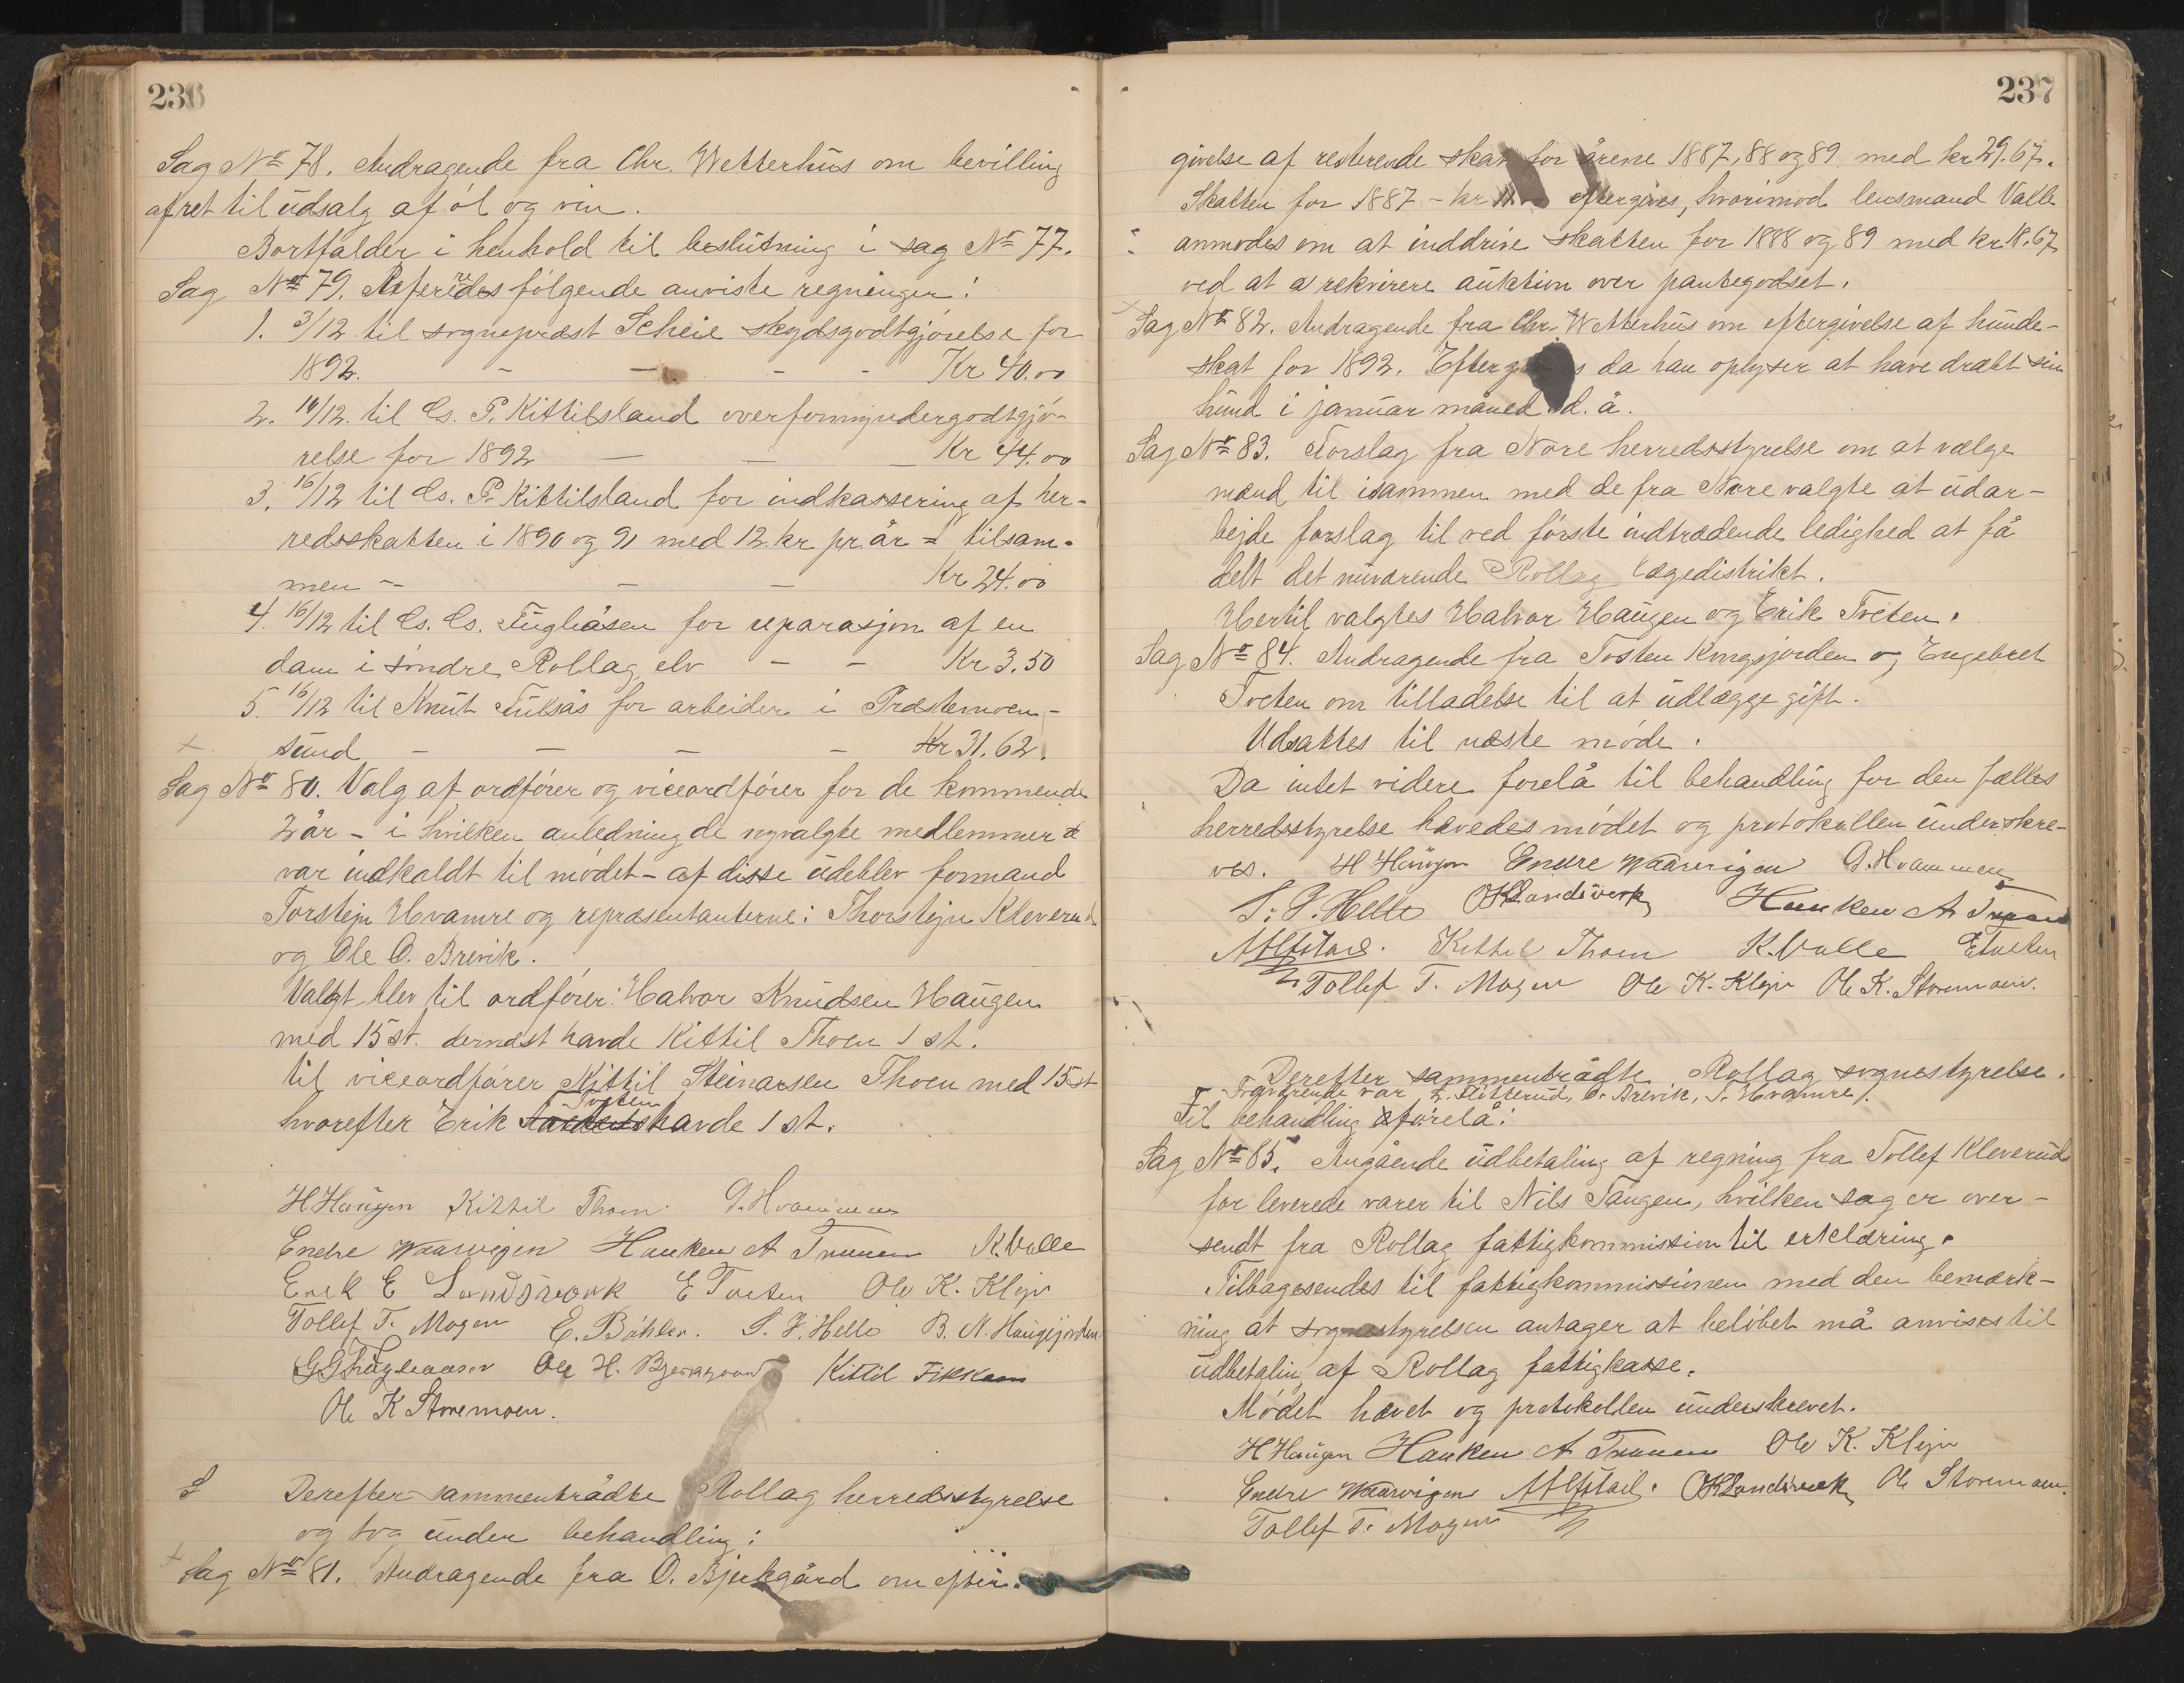 236
Sag No 78. Andragende fra Chr. Wetterhus om bevilling
afret til udsalg af øl og vin.
Bortfalder i henhold til beslutning i sag No 77.
Sag No 79. Refereredes følgende anviste regninger:
1. 3/12 til sogneprest Scheie skydsgodtgjørelse for
1892. - - - - Kr 40.00
2. 16/12. til Cs. P. Kittilsland overformyndergodtgjø-
relse for 1892 - - - Kr 44.00
3. 16/12 til Cs. P. Kittilsland for indkassering af her-
redsskatten i 1890 og 91 med 12. kr pr. år = tilsam-
men - - - Kr 24.00
4. 16/12 til Cs. Cs. Fugleåsen for reparasjon af en
dam i søndre Rollag elv - - Kr 3.50
5. 16/12 til Knut Fulsås for arbeider i Præstemoen-
sund - - - - Kr 31.62.
Sag No 80. Valg af ordfører og viceordfører for de kommende
2 år - i hvilken anledning de nyvalgte medlemmer
var indkaldt til mødet - af disse udeblev formand
Torstejn Hvamre og repræsentanterne: Thorstejn Kleverud
og Ole O. Brevik.
Valgt blev til ordfører: Halvor Knudsen Haugen
med 15 st. dernæst havde Kittil Thoen 1 st.
til viceordfører Kittil Steinarsen Thoen med 15 st
hvorefter Erik Tveten havde 1 st.
H Haugen Kittil Thoen. G. Hvammen
Endre Waarvigen Hauken A Traaen K. Valle
Erik E Landsverk E Tveten Ole K. Klejv
Tollef T. Mogen E. Bøhler. S. J. Helle B. N. Haugjorden
G G Fugleaasen Ole H. Bjerkgaard Kittil Fikkan
Ole K Storemoen.
Derefter sammentrådte Rollag herredsstyrelse
og tog under behandling:
Sag No 81. Andragende fra O. Bjerkgård om efter-
237
givelse af resterende skat for årene 1887, 88 og 89 med kr 29.67.
Skatten for 1887 - kr 11. eftergives, hvorimod lensmand Valle
anmodes om at inddrive skatten for 1888 og 89 med kr 18.67
ved at rekvirere auktion over pantegodset.
Sag No 82. Andragende fra Chr. Wetterhus om eftergivelse af hunde-
skat for 1892. Eftergives da han oplyser at have dræbt sin
hund i januar måned d. å.
Sag No 83. Forslag fra Nore herredsstyrelse om at vælge
mænd til isammen med de fra Nore valgte at udar-
bejde forslag til ved første indtrædende ledighed at få
delt det nuværende Rollag lægedistrikt.
Hertil valgtes Halvor Haugen og Erik Tveten.
Sag No 84. Andragende fra Tosten Kongsjorden og Engebret
Tveten om tilladelse til at udlægge gift.
Udsattes til næste møde.
Da intet videre forelå til behandling for den fælles
herredsstyrelse hævedes mødet og protokollen underskre-
ves. H Haugen Endre Waarvigen G. Hvammen
S. J. Helle O K Landsverk Hauken A Traaen
Kittil Thoen K. Valle E Tveten
Tollef T. Mogen Ole K. Klejv Ole K. Storemoen.
Derefter sammentrådte Rollag sognestyrelse.
Fraværende var L. Flitterud, O. Brevik, T. Hvamre.
Til behandling forelå:
Sag No 85. Angående udbetaling af regning fra Tollef Kleverud
for leverede varer til Nils Tangen, hvilken sag er over-
sendt fra Rollag fattigkommission til erklæring.
Tilbagesendes til fattigkommissionen med den bemærk-
ning at sognestyrelsen antager at beløbet må anvises til
udbetaling af Rollag fattigkasse.
Mødet hævet og protokollen underskrevet.
H Haugen Hauken A Traaen Ole K. Klejv
Endre Waarvigen O K Landsverk Ole Storemoen.
Tollef T. Mogen